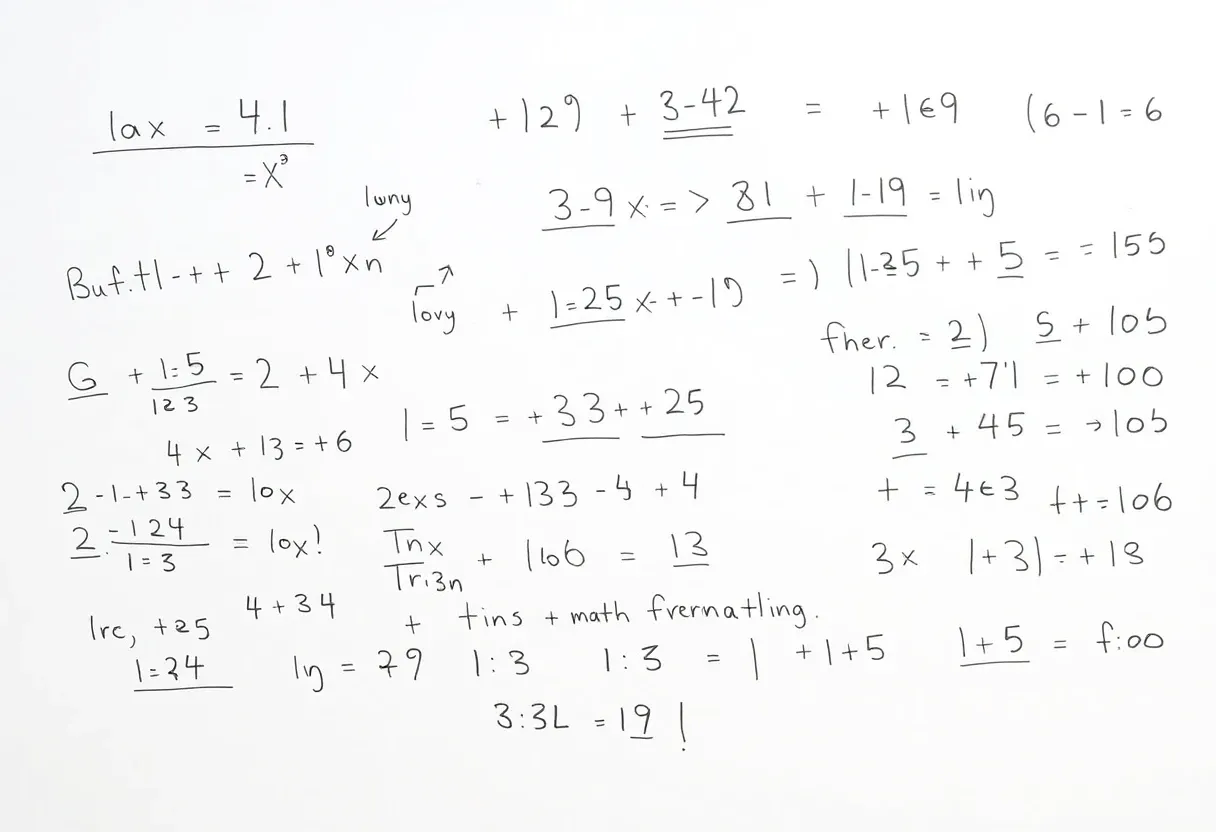 lax = 4.1
= x³
+129 + 3-42 = +1€9 (6-1=6
luny
3-9 x = > 81 + 1-19 = lin
Buf.+1-++ 2 + 1⁸ xn
lovy + 1=25 x + -19 =) (1-35 + + 5 = = 155
fher. = 2) 5 + 105
G + 1:5/123 = 2 + 4 x
12 = +7'1 = +100
1 = 5 = +33 + +25
3 + 45 = →105
4 x + 13 = +6
2 -1-+33 = lox
2exs - +133 -4 +4
+ = 4€3 ++ = 106
2. -124/1=3 = lox!
Tnx/Tri3n + 1106 = 13
3x 1+3| = +13
lrc, +25 4 + 34
+ tins + math frernatling.
1=34 ln = 29 1:3 1:3 = | +1+5 1+5 = f:00
3:3L = 19 !